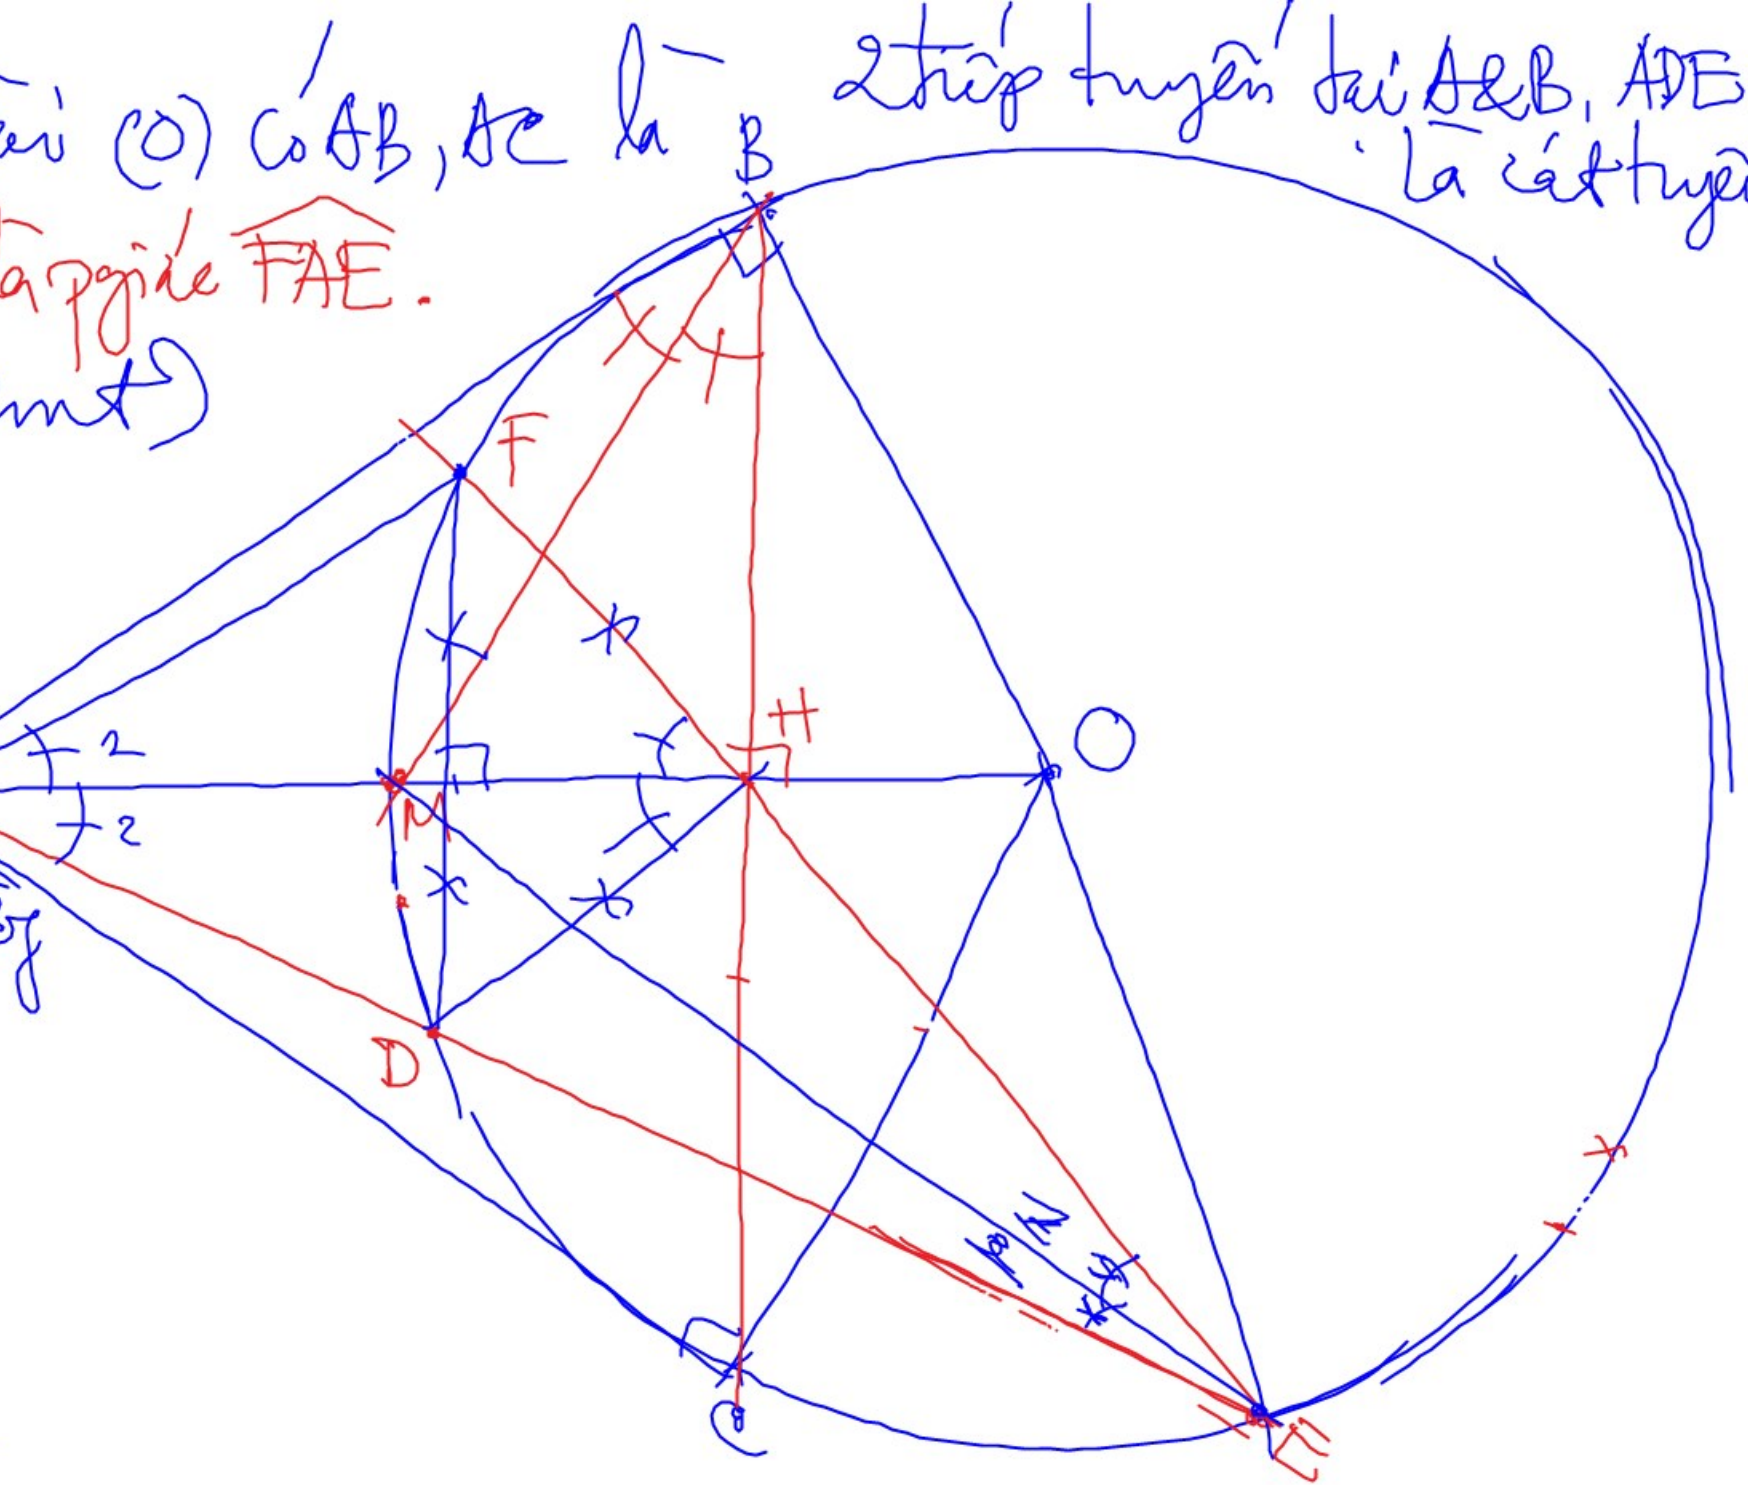 (O) có AB, AC là 2 tiếp tuyến tại A&B, ADE
là cát tuyế
pgiác FAE.
mt)
B
F
H
O
2
M
2
D
C
E